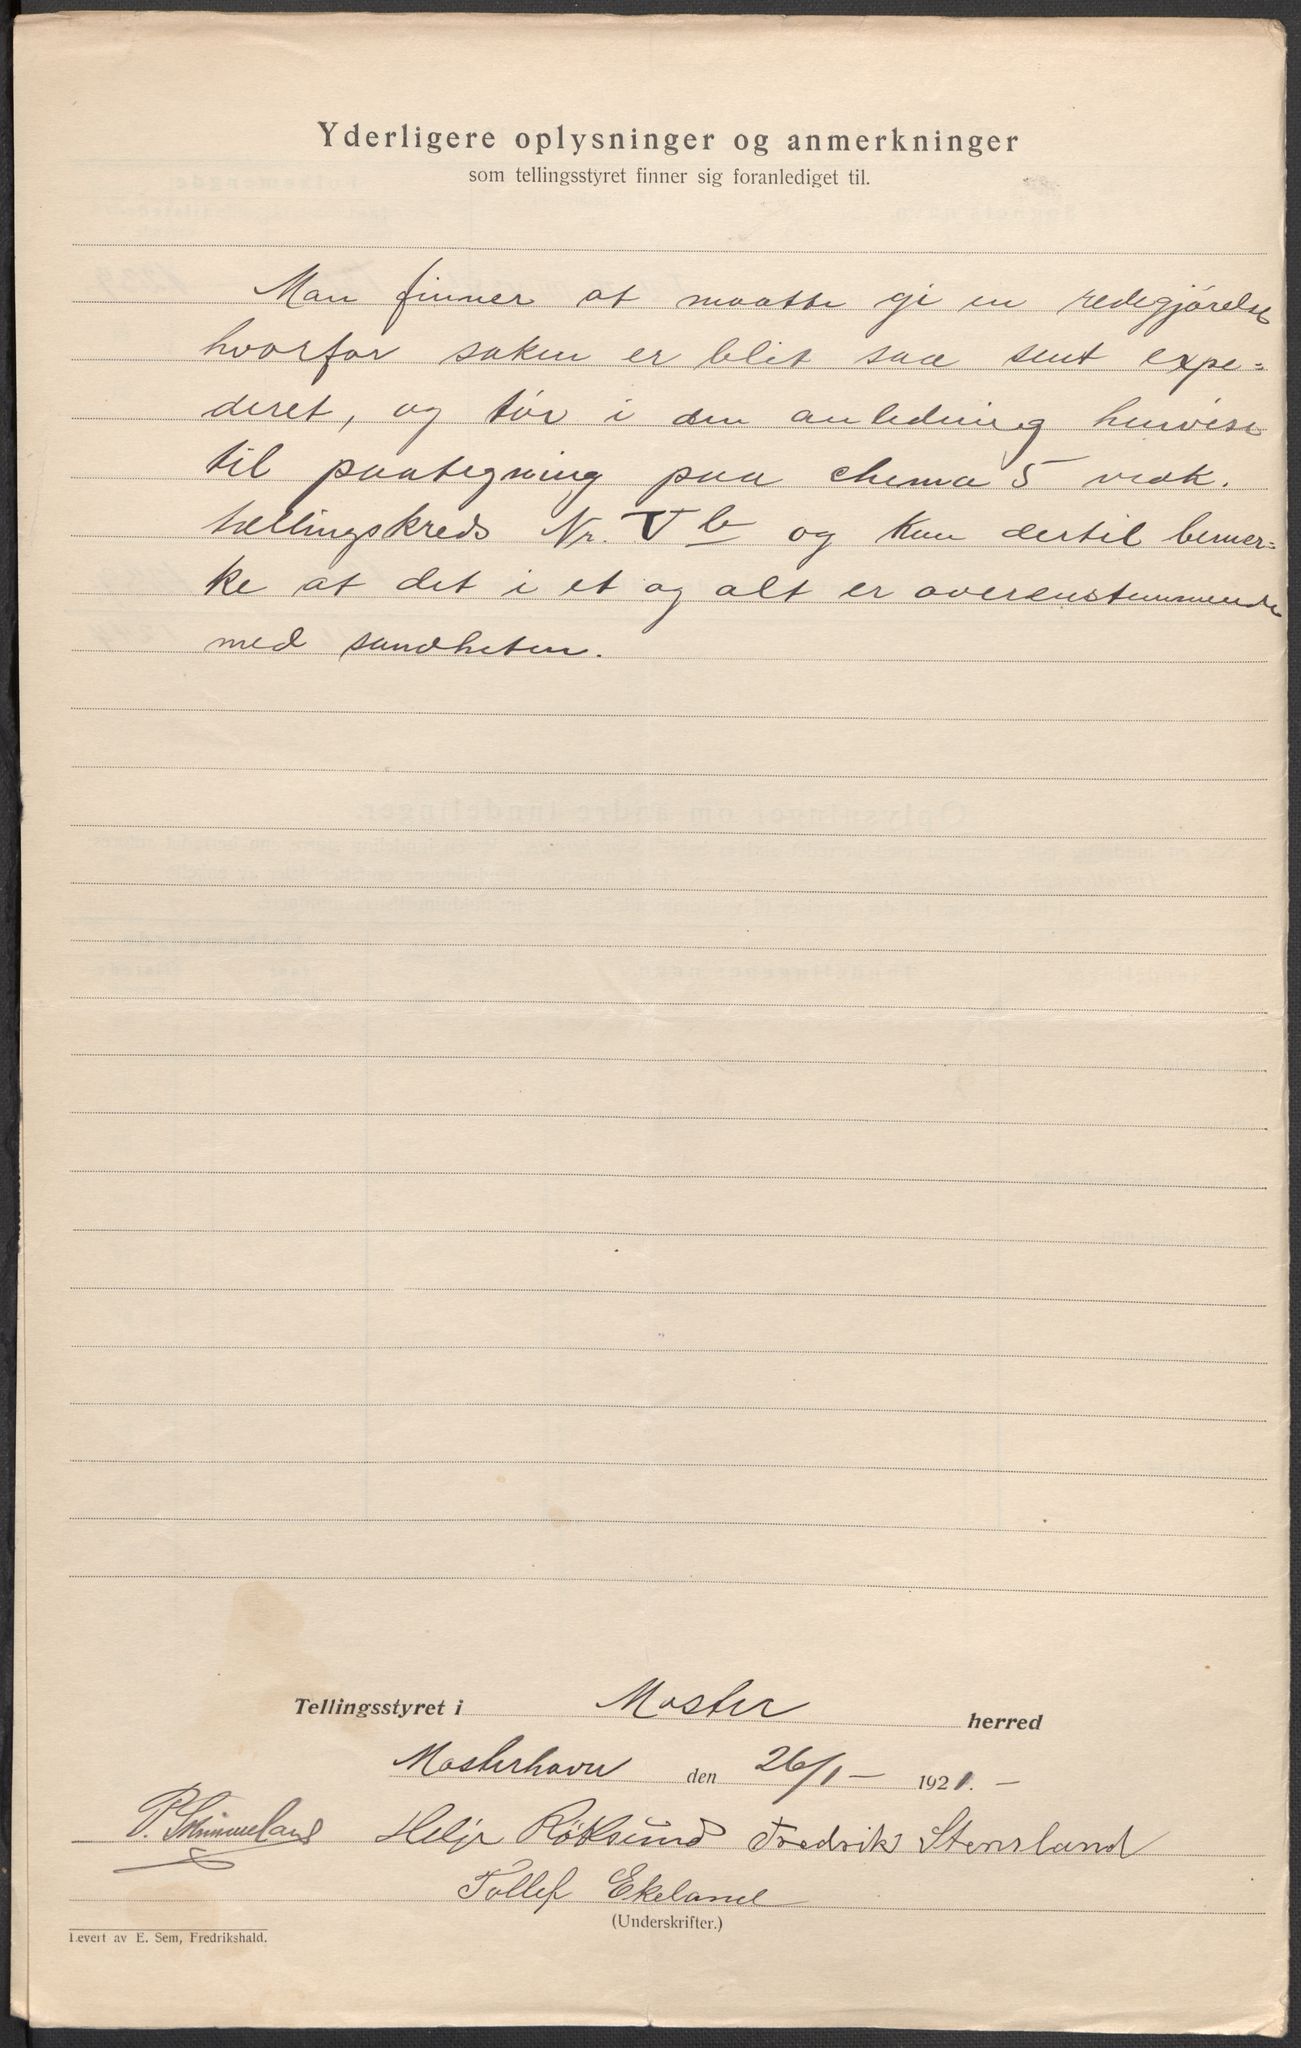 Yderligere oplysninger og anmerkninger
som tellingsstyret finner sig foranlediget til.
Man finner at maatte gi en redegjørelse
hvorfor saken er blit saa sent expe-
deret, og tør i den anledning henvise
til paategning paa chema 5 vedk.
tællingskreds Nr. V b og kan dertil bemer-
ke at det i et og alt er overenstemmende
med sandheten.
Tellingsstyret i Moster herred
Mosterhavn den 26/1 - 1921. -
P. Skimmeland Helje Røksund Fredrik Stensland
Tollef Ekeland
(Underskrifter.)
Levert av E. Sem, Fredrikshald.